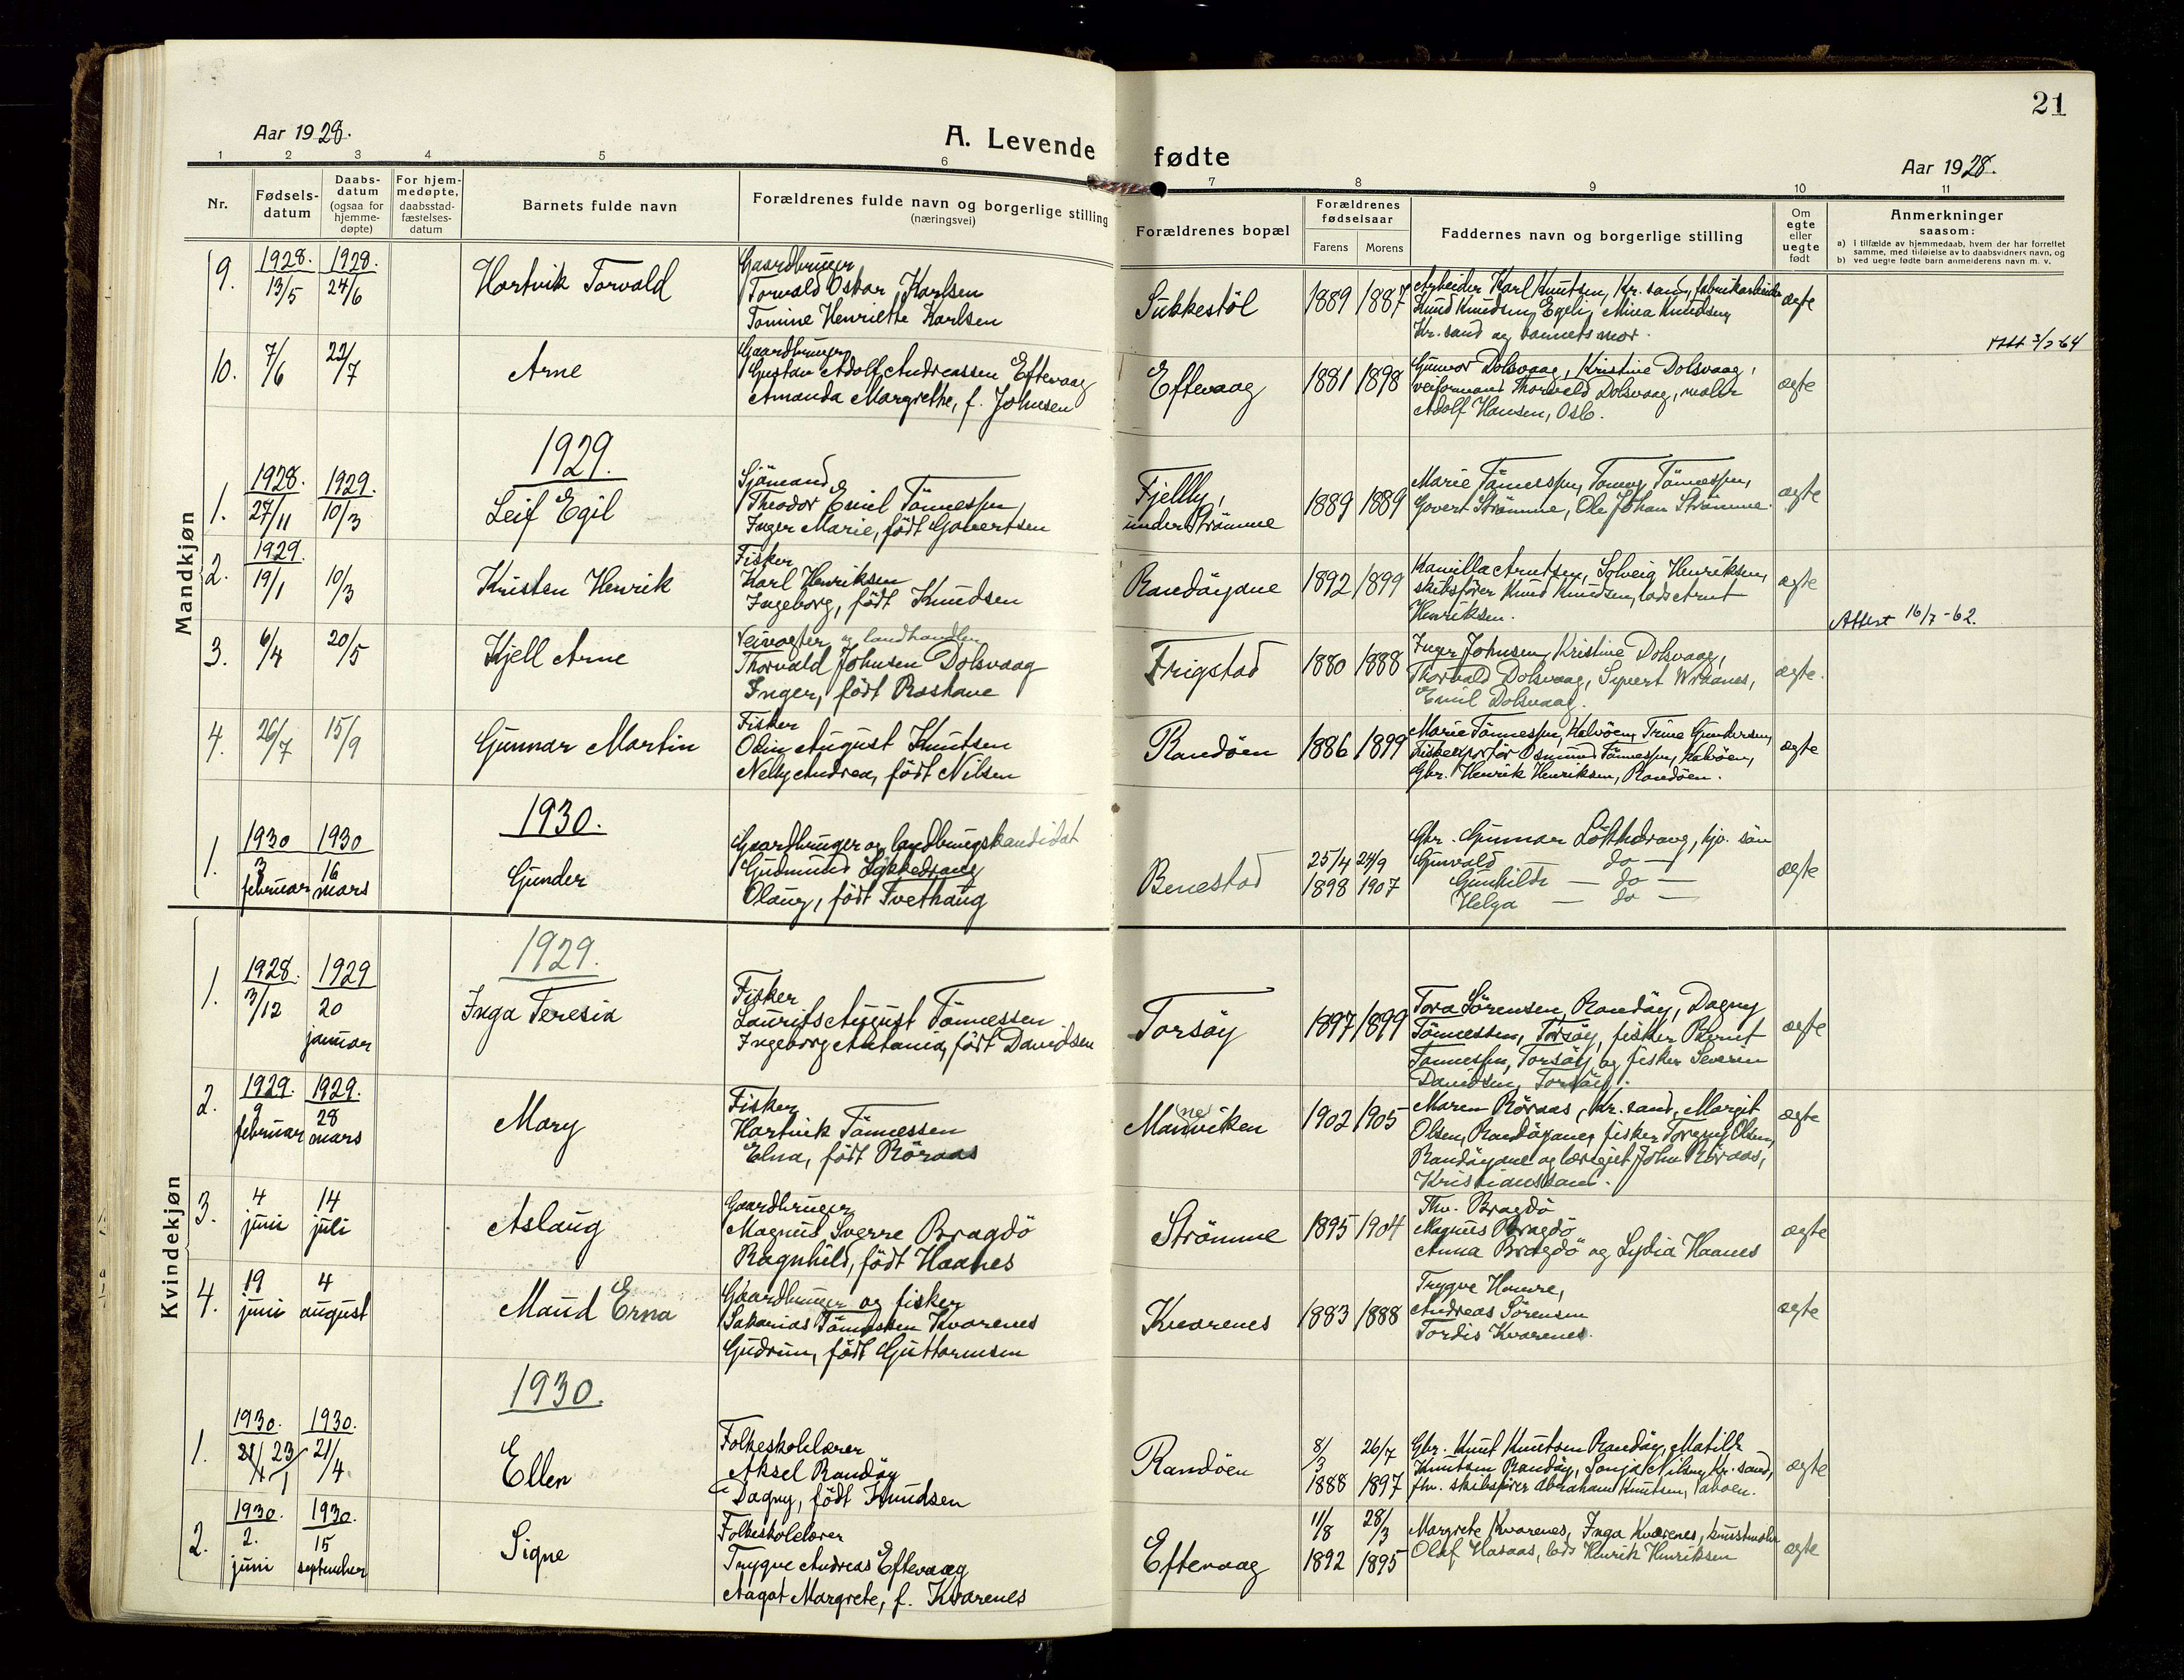 21
Aar 1928.
A. Levende fødte
Aar 1928.
1 2 3 4 5 6 7 8 9 10 11
Nr.
Fødsels-
datum
Daabs-
datum
(ogsaa for
hjemme-
døpte)
For hjem-
medøpte,
daabsstad-
fæstelses-
datum
Barnets fulde navn
Forældrenes fulde navn og borgerlige stilling
(næringsvei)
Forældrenes bopæl
Forældrenes
fødselsaar
Farens Morens
Faddernes navn og borgerlige stilling
Om
egte
eller
uegte
født
Anmerkninger
saasom:
a) i tilfælde av hjemmedaab, hvem der har forrettet
samme, med tilføielse av to daabsvidners navn, og
b) ved uegte fødte barn anmelderens navn m. v.
Mandkjøn
9.
1928. 1928.
13/5 24/6
Hartvik Torvald
Gaardbruger
Torvald Oskar Karlsen
Tomine Henriette Karlsen
Sukkestöl
1889 1887
Arbeider Karl Knutsen, Kr.sand, fabrikarbeider
Knud Knudsen, Egeli, Mina Knudsen,
Kr.sand og barnets mor.
ægte
10.
7/6 22/7
Arne
Gaardbruger
Gustav Adolf Andreassen Eftevaag
Amanda Margrethe, f. Johnsen
Eftevaag
1881 1898
Gunvor Dolsvaag, Kristine Dolsvaag,
veiformand Thorvald Dolsvaag, maler
Adolf Hansen, Oslo.
ægte
1929.
1.
1928. 1929.
27/11 10/3
Leif Egil
Sjömand
Theodor Emil Tönnessen
Inger Marie, født Govertsen
Fjellly,
under Strömme
1889 1889
Marie Tönnessen, Tommy Tönnessen,
Govert Strömme, Ole Johan Strömme.
ægte
2.
1929.
19/1 10/3
Kristen Henrik
Fisker
Karl Henriksen
Ingeborg, født Knudsen
Randöyane
1892 1899
Kamilla Arntsen, Solveig Henriksen,
skibsfører Knud Knudsen, lods Arnt
Henriksen.
ægte
Attest 16/7-62.
3.
6/4 20/5
Kjell Arne
Veivogter og landhandler
Thorvald Johnsen Dolsvaag
Inger, født Rostane
Frigstad
1880 1888
Inger Johnsen, Kristine Dolsvaag,
Thorvald Dolsvaag, Syvert Wraanes,
Emil Dolsvaag.
ægte.
4.
26/7 15/9
Gunnar Martin
Fisker
Odin August Knutsen
Nelly Andrea, født Nilsen
Randöen
1886 1899
Marie Tönnessen, Kalvöen, Trine Gundersen,
Osmund Tönnessen, Kalvöen,
Gbr. Henrik Henriksen, Randöen.
ægte
1930.
1.
1930 1930
3 16
februar mars
Gunder
Gaardbruger og landbrugskandidat
Gudmund Løkkedrang
Olaug, født Tvethaug
Benestad
25/4 24/9
1898 1907
Gbr. Gunnar Løkkedrang, hjv. sön
Gunvald — do —
Gunhild — do —
Helga — do —
ægte
Kvindekjøn
1929.
1.
1928. 1929
3/12 20
januar
Inga Teresia
Fisker
Laurits August Tönnessen
Ingeborg Antonia, født Davidsen
Torsöy
1897 1899
Tora Sörensen, Randöy, Dagny
Tönnessen, Torsöy, fisker Bernt
Tönnessen, Torsöy og fisker Severin
Davidsen, Torsöy.
ægte
2.
1929. 1929.
9 28
februar mars
Mary
Fisker
Hartvik Tönnessen
Elna, født Röraas
Man(ne)viken
1902 1905
Maren Röraas, Kr.sand, Margit
Olsen, Randöyane, fisker Torgny Olsen,
Randöyane og læregut John Röraas,
Kristianssand.
ægte
3.
4 14
juni juli
Aslaug
Gaardbruger
Magnus Sverre Bragdö
Ragnhild, født Haanes
Strömme
1895 1904
Thv. Bragdö
Magnus Bragdö
Anna Bragdö og Lydia Haanes
ægte
4.
19 4
juni august
Maud Erna
Gaardbruger og fisker
Sakarias Tönnessen Kvarenes
Gudrun, født Guttormsen
Kvarenes
1883 1888
Trygve Homre,
Andreas Sörensen
Tordis Kvarenes.
ægte
1930.
1.
1930. 1930.
23/1 21/4
Ellen
Folkeskolelærer
Aksel Randöy
Dagny, født Knudsen
Randöen
8/3 26/7
1888 1897
Gbr. Knut Knutsen Randöy, Matilde
Knutsen Randöy, Sonja Nilsen, Kr.sand,
fhv. skibsfører Abraham Knutsen,
ægte
2.
1930. 1930.
2. 15
juni september
Signe
Folkeskolelærer
Trygve Andreas Eftevaag
Aagot Margrete, f. Kvarenes
Eftevaag
11/8 28/3
1892 1895
Margrete Kvarenes, Inga Kvarenes, kunstmaler
Olaf Hasaas, lods Henrik Henriksen
ægte